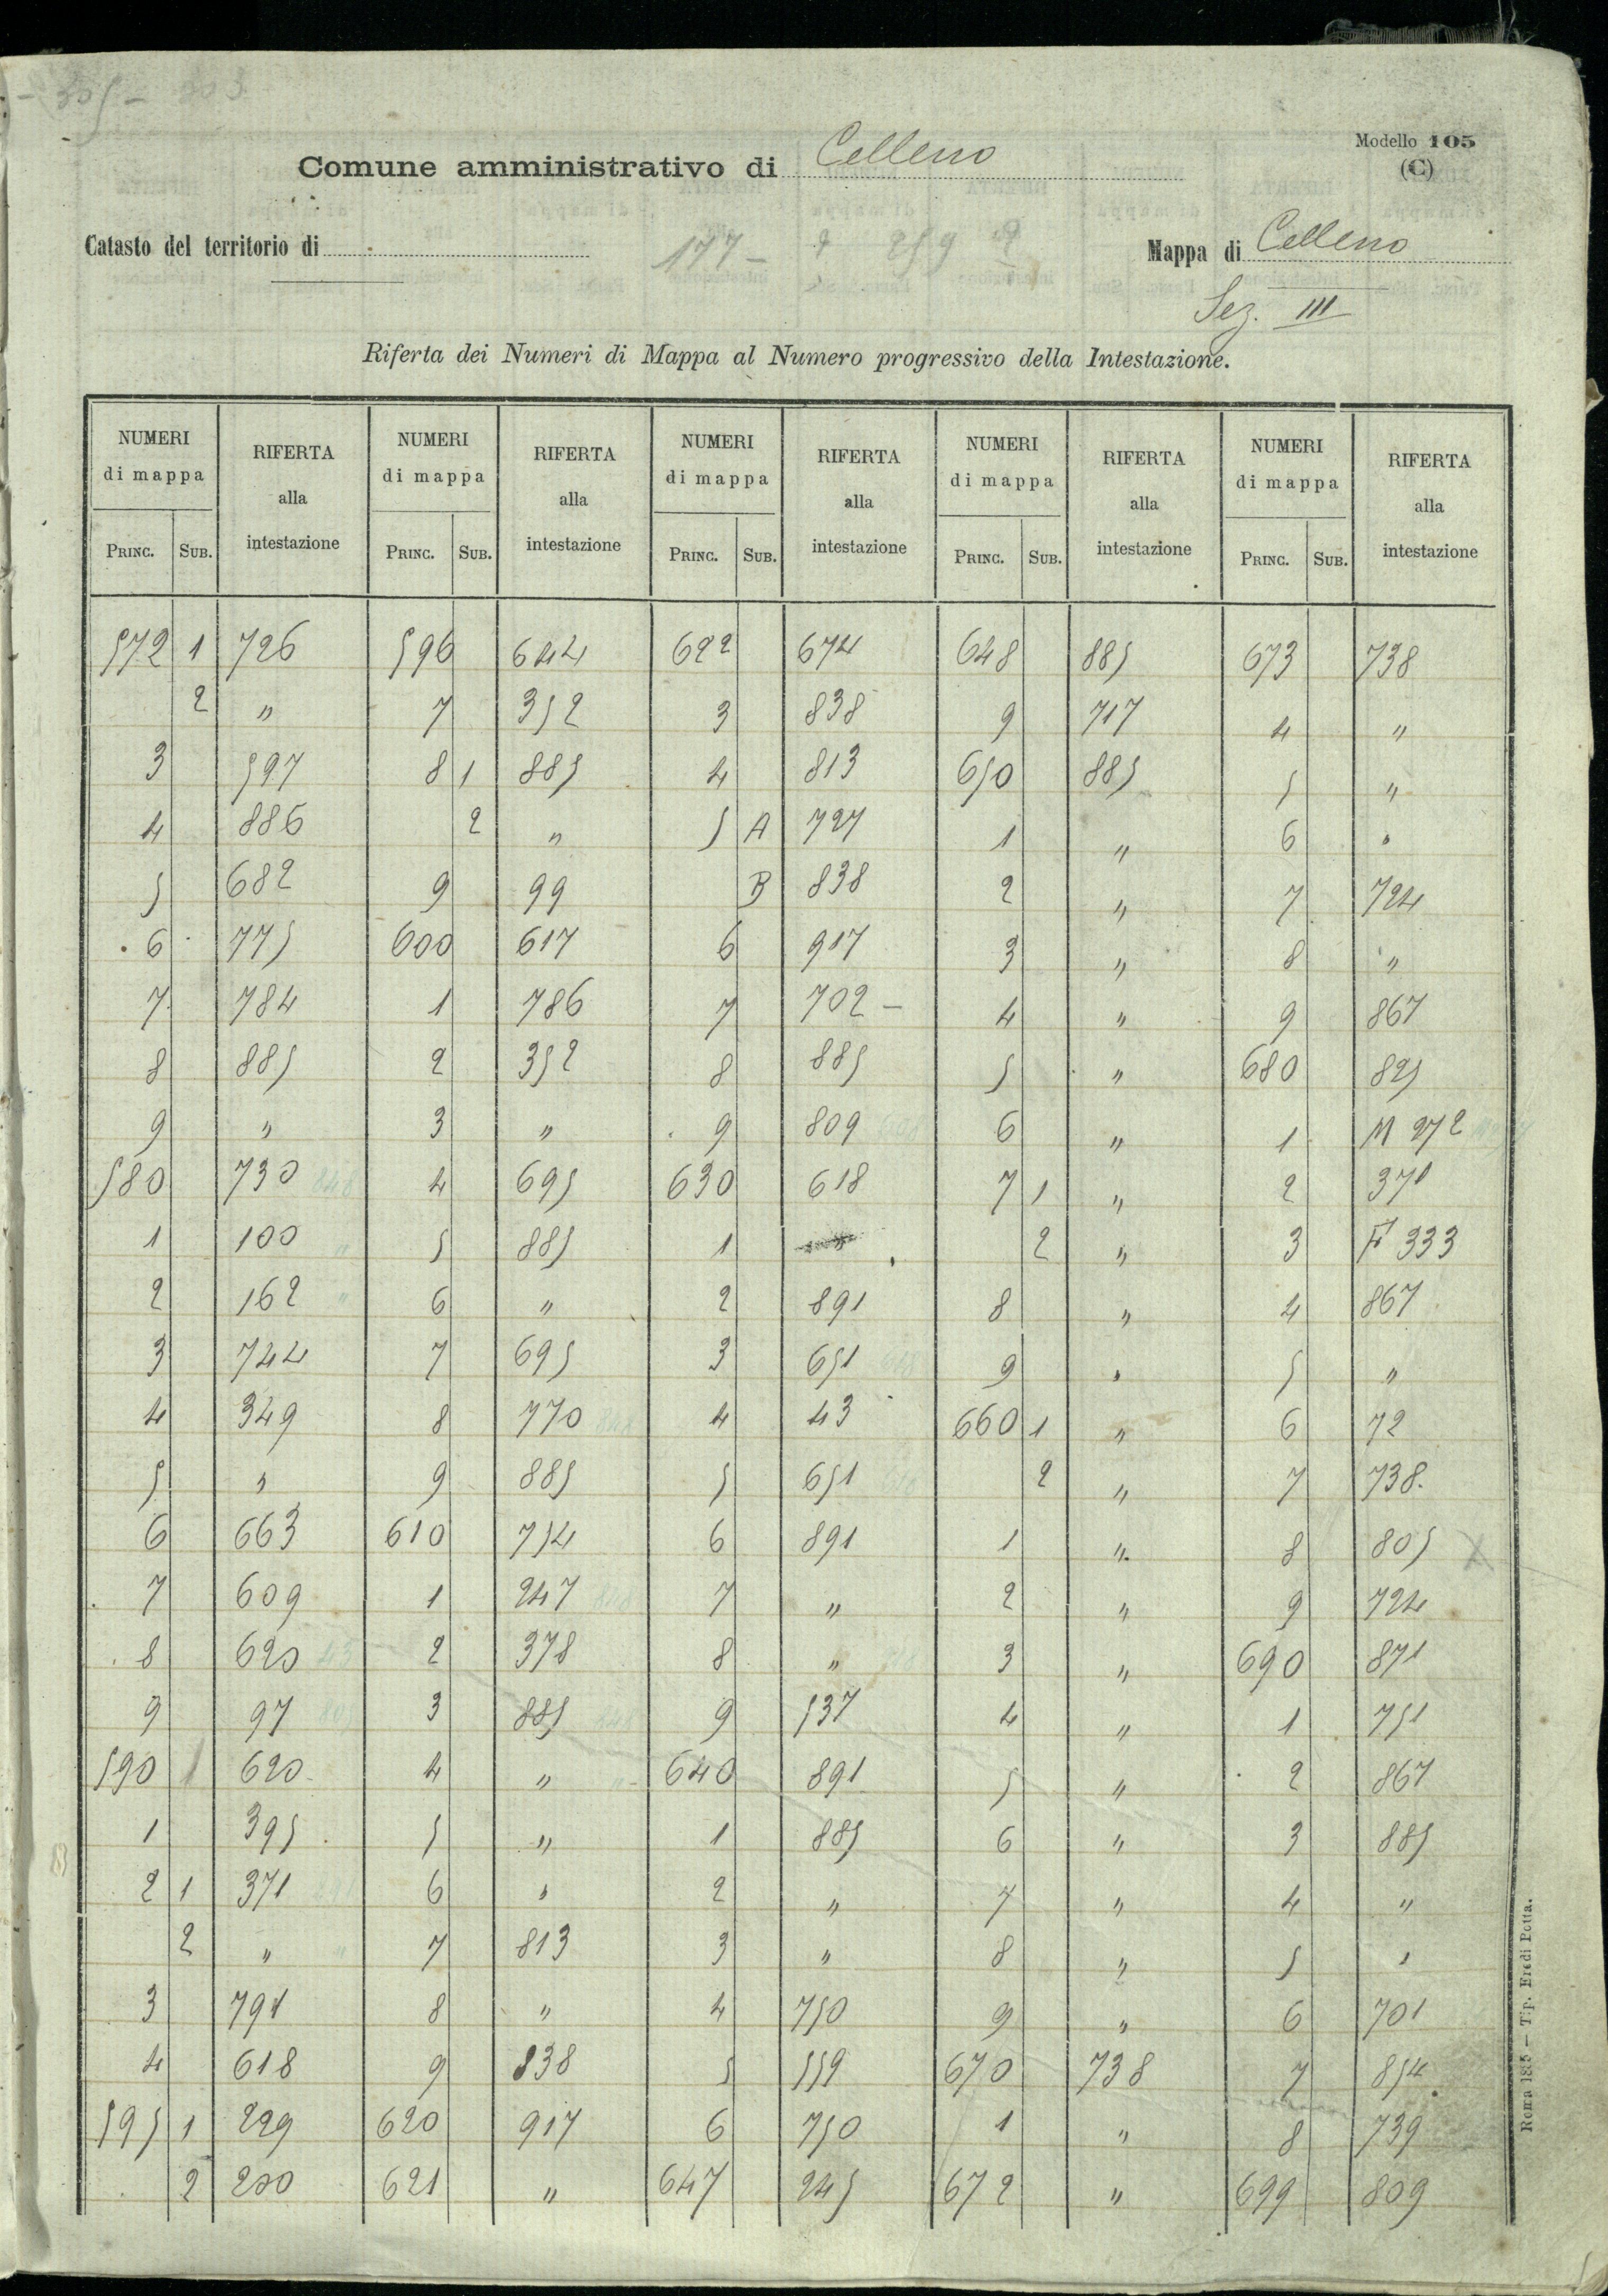 Modello 105
(C)
Comune amministrativo di Celleno
Catasto del territorio di
177 - 259
Mappa di Celleno
Sez. III
Riferta dei Numeri di Mappa al Numero progressivo della Intestazione.
NUMERI di mappa RIFERTA alla intestazione NUMERI di mappa RIFERTA alla intestazione NUMERI di mappa RIFERTA alla intestazione NUMERI di mappa RIFERTA alla intestazione NUMERI di mappa RIFERTA alla intestazione
PRINC. SUB. PRINC. SUB. PRINC. SUB. PRINC. SUB. PRINC. SUB.
572 1 726 596 644 622 674 648 885 673 738
2 " 7 352 3 838 9 717 4 "
3 597 8 1 885 4 813 650 885 5 "
4 886 2 " 5 A 727 1 " 6 "
5 682 9 99 B 838 2 " 7 724
6 775 600 617 6 917 3 " 8 "
7 784 1 786 7 702 - 4 " 9 867
8 885 2 352 8 885 5 " 680 825
9 " 3 " 9 809 6 " 1 M 272
580 730 4 695 630 618 7 1 " 2 371
1 100 5 885 1 " 2 " 3 F 333
2 162 6 " 2 891 8 " 4 867
3 744 7 695 3 651 9 " 5 "
4 349 8 770 4 43 660 1 " 6 72
5 " 9 885 5 651 2 " 7 738.
6 663 610 754 6 891 1 " 8 805
7 609 1 247 7 " 2 " 9 724
8 620 2 378 8 " 3 " 690 871
9 97 3 885 9 537 4 " 1 751
590 620 4 " 640 891 5 " 2 867
1 395 5 " 1 885 6 " 3 885
2 1 371 6 " 2 " 7 " 4 "
2 " 7 813 3 " 8 " 5 "
3 791 8 " 4 750 9 " 6 701
4 618 9 838 5 559 670 738 7 854
595 1 229 620 917 6 750 1 " 8 739
2 200 621 " 647 245 672 " 699 809
Roma 1885 — Tip. Eredi Botta.